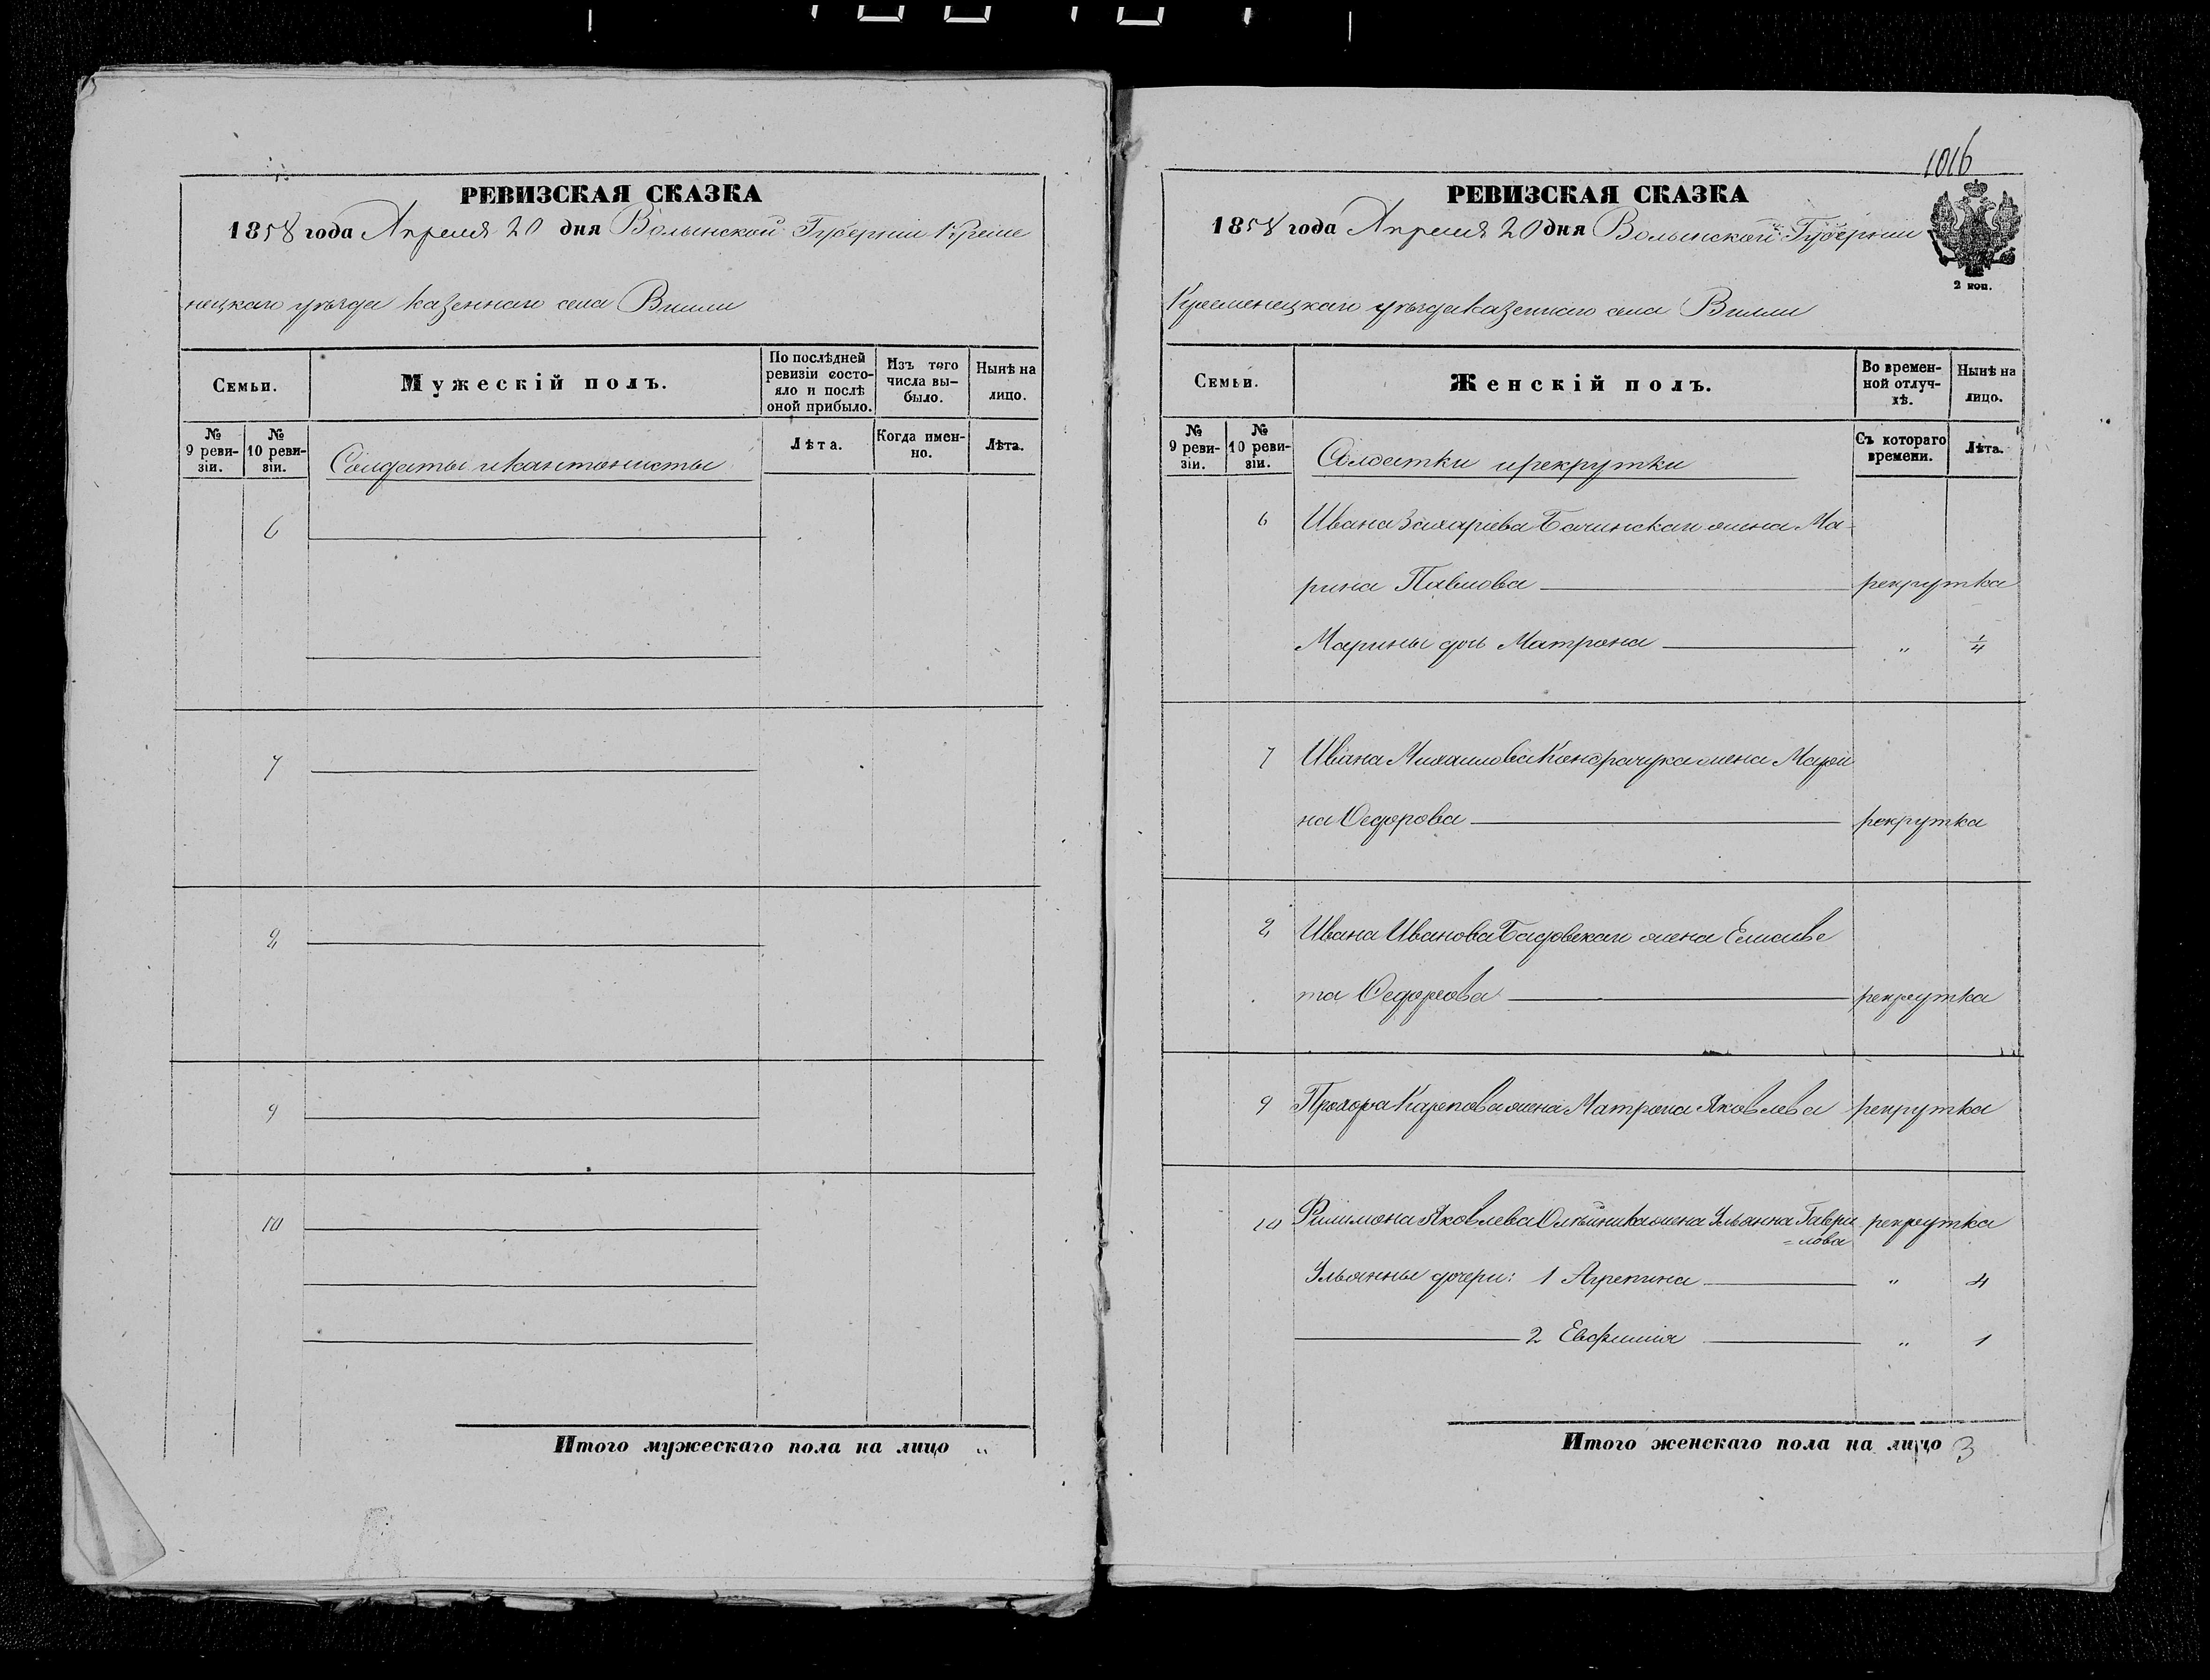 РЕВИЗСКАЯ СКАЗКА
1858 года Апреля 20 дня Волынской Губернiи Креме
нецкаго уѣзда казеннаго села Вилли
Семьи.
Мужескiй полъ.
По послѣдней ревизiи состояло и послѣ оной прибыло.
Изъ того числа выбыло.
Нынѣ на лицо.
№ 9 ревизiи.
№ 10 ревизiи.
Солдаты и кантонисты
Лѣта.
Когда именно.
Лѣта.
6
7
8
9
10
Итого мужескаго пола на лицо „
1016
РЕВИЗСКАЯ СКАЗКА
1858 года Апреля 20 дня Волынской Губернiи
2 коп.
Кременецкаго уѣзда казеннаго села Вилли
Семьи.
Женскiй полъ.
Во временной отлучкѣ.
Нынѣ на лицо.
№ 9 ревизiи.
№ 10 ревизiи.
Солдатки и рекрутки
Съ котораго времени.
Лѣта.
6 Ивана Захарiева Бачинскаго жена Ма-
рина Павлова рекрутка
Марины дочь Матрона „ 1/4
7 Ивана Михаилова Кондрачука жена Мари
на Ѳедорова рекрутка
8 Ивана Иванова жена Елисаве
та Ѳедорова рекрутка
9 Прохора Карпова жена Матрона Яковлева рекрутка
10 Филимона Яковлева Олѣйника жена Ульянна Гаври рекрутка
=лова
Ульянны дочери: 1 Агрепина „ 4
2 Евфимiя „ 1
Итого женскаго пола на лицо 3